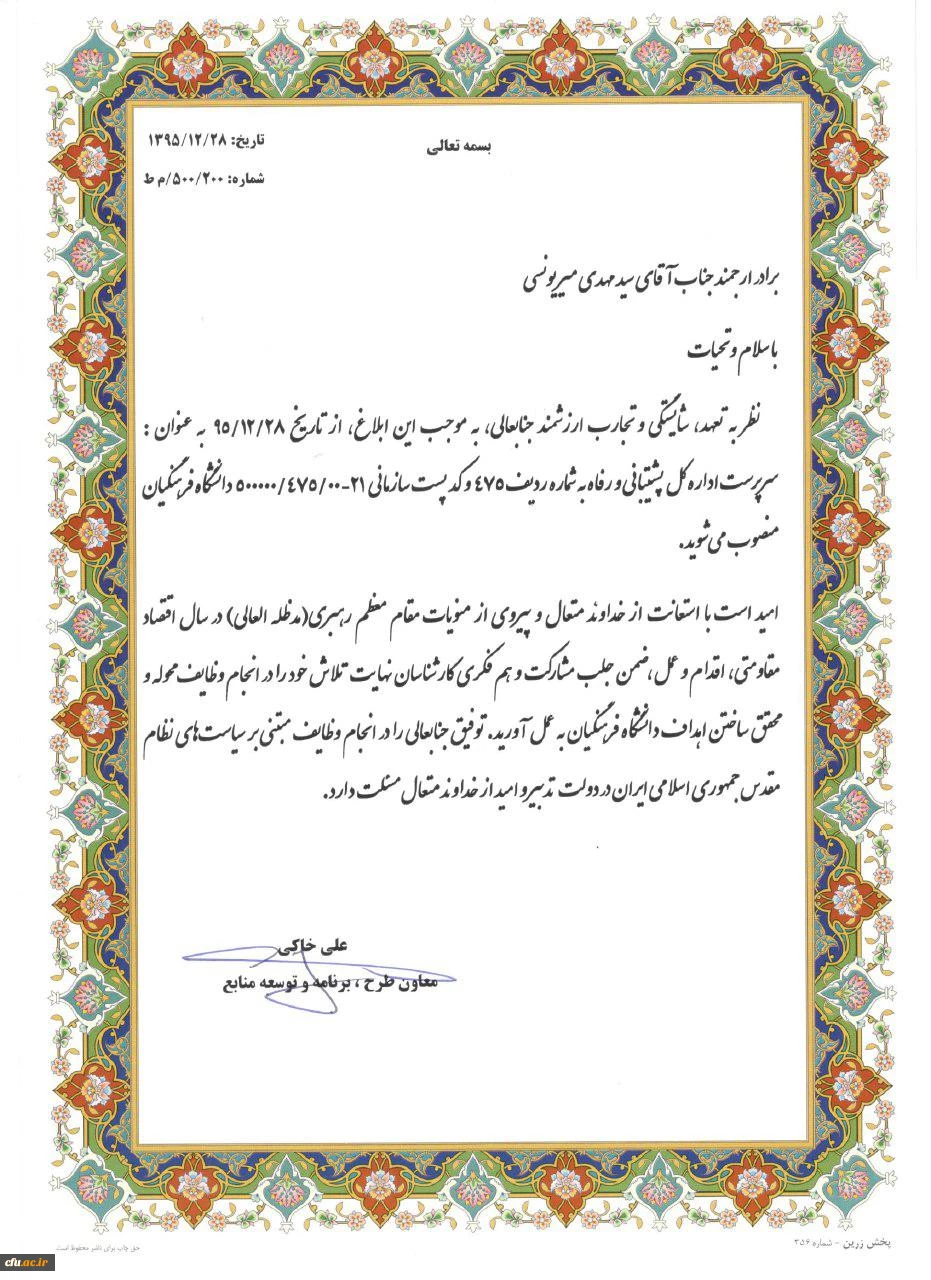 بسمه تعالی
تاریخ: ۱۳۹۵/۱۲/۲۸
شماره: ۵۰۰/۲۰۰/م ط
برادر ارجمند جناب آقای سید مهدی میریونسی
با سلام و تحیات
نظر به تعهد، شایستگی و تجارب ارزشمند جنابعالی، به موجب این ابلاغ، از تاریخ ۹۵/۱۲/۲۸ به عنوان :
سرپرست اداره کل پشتیبانی و رفاه به شماره ردیف ۴۷۵ و کد پست سازمانی ۲۱-۵۰۰۰۰۰/۴۷۵/۰۰ دانشگاه فرهنگیان
منصوب می شوید.
امید است با استعانت از خداوند متعال و پیروی از منویات مقام معظم رهبری(مدظله العالی) در سال اقتصاد
مقاومتی، اقدام و عمل، ضمن جلب مشارکت و هم فکری کارشناسان نهایت تلاش خود را در انجام وظایف محوله و
محقق ساختن اهداف دانشگاه فرهنگیان به عمل آورید. توفیق جنابعالی را در انجام وظایف مبتنی بر سیاست‌های نظام
مقدس جمهوری اسلامی ایران در دولت تدبیر و امید از خداوند متعال مسئلت دارد.
علی خاکی
معاون طرح ، برنامه و توسعه منابع
پخش زرین - شماره ۳۵۶
حق چاپ برای ناشر محفوظ است
cfu.ac.ir